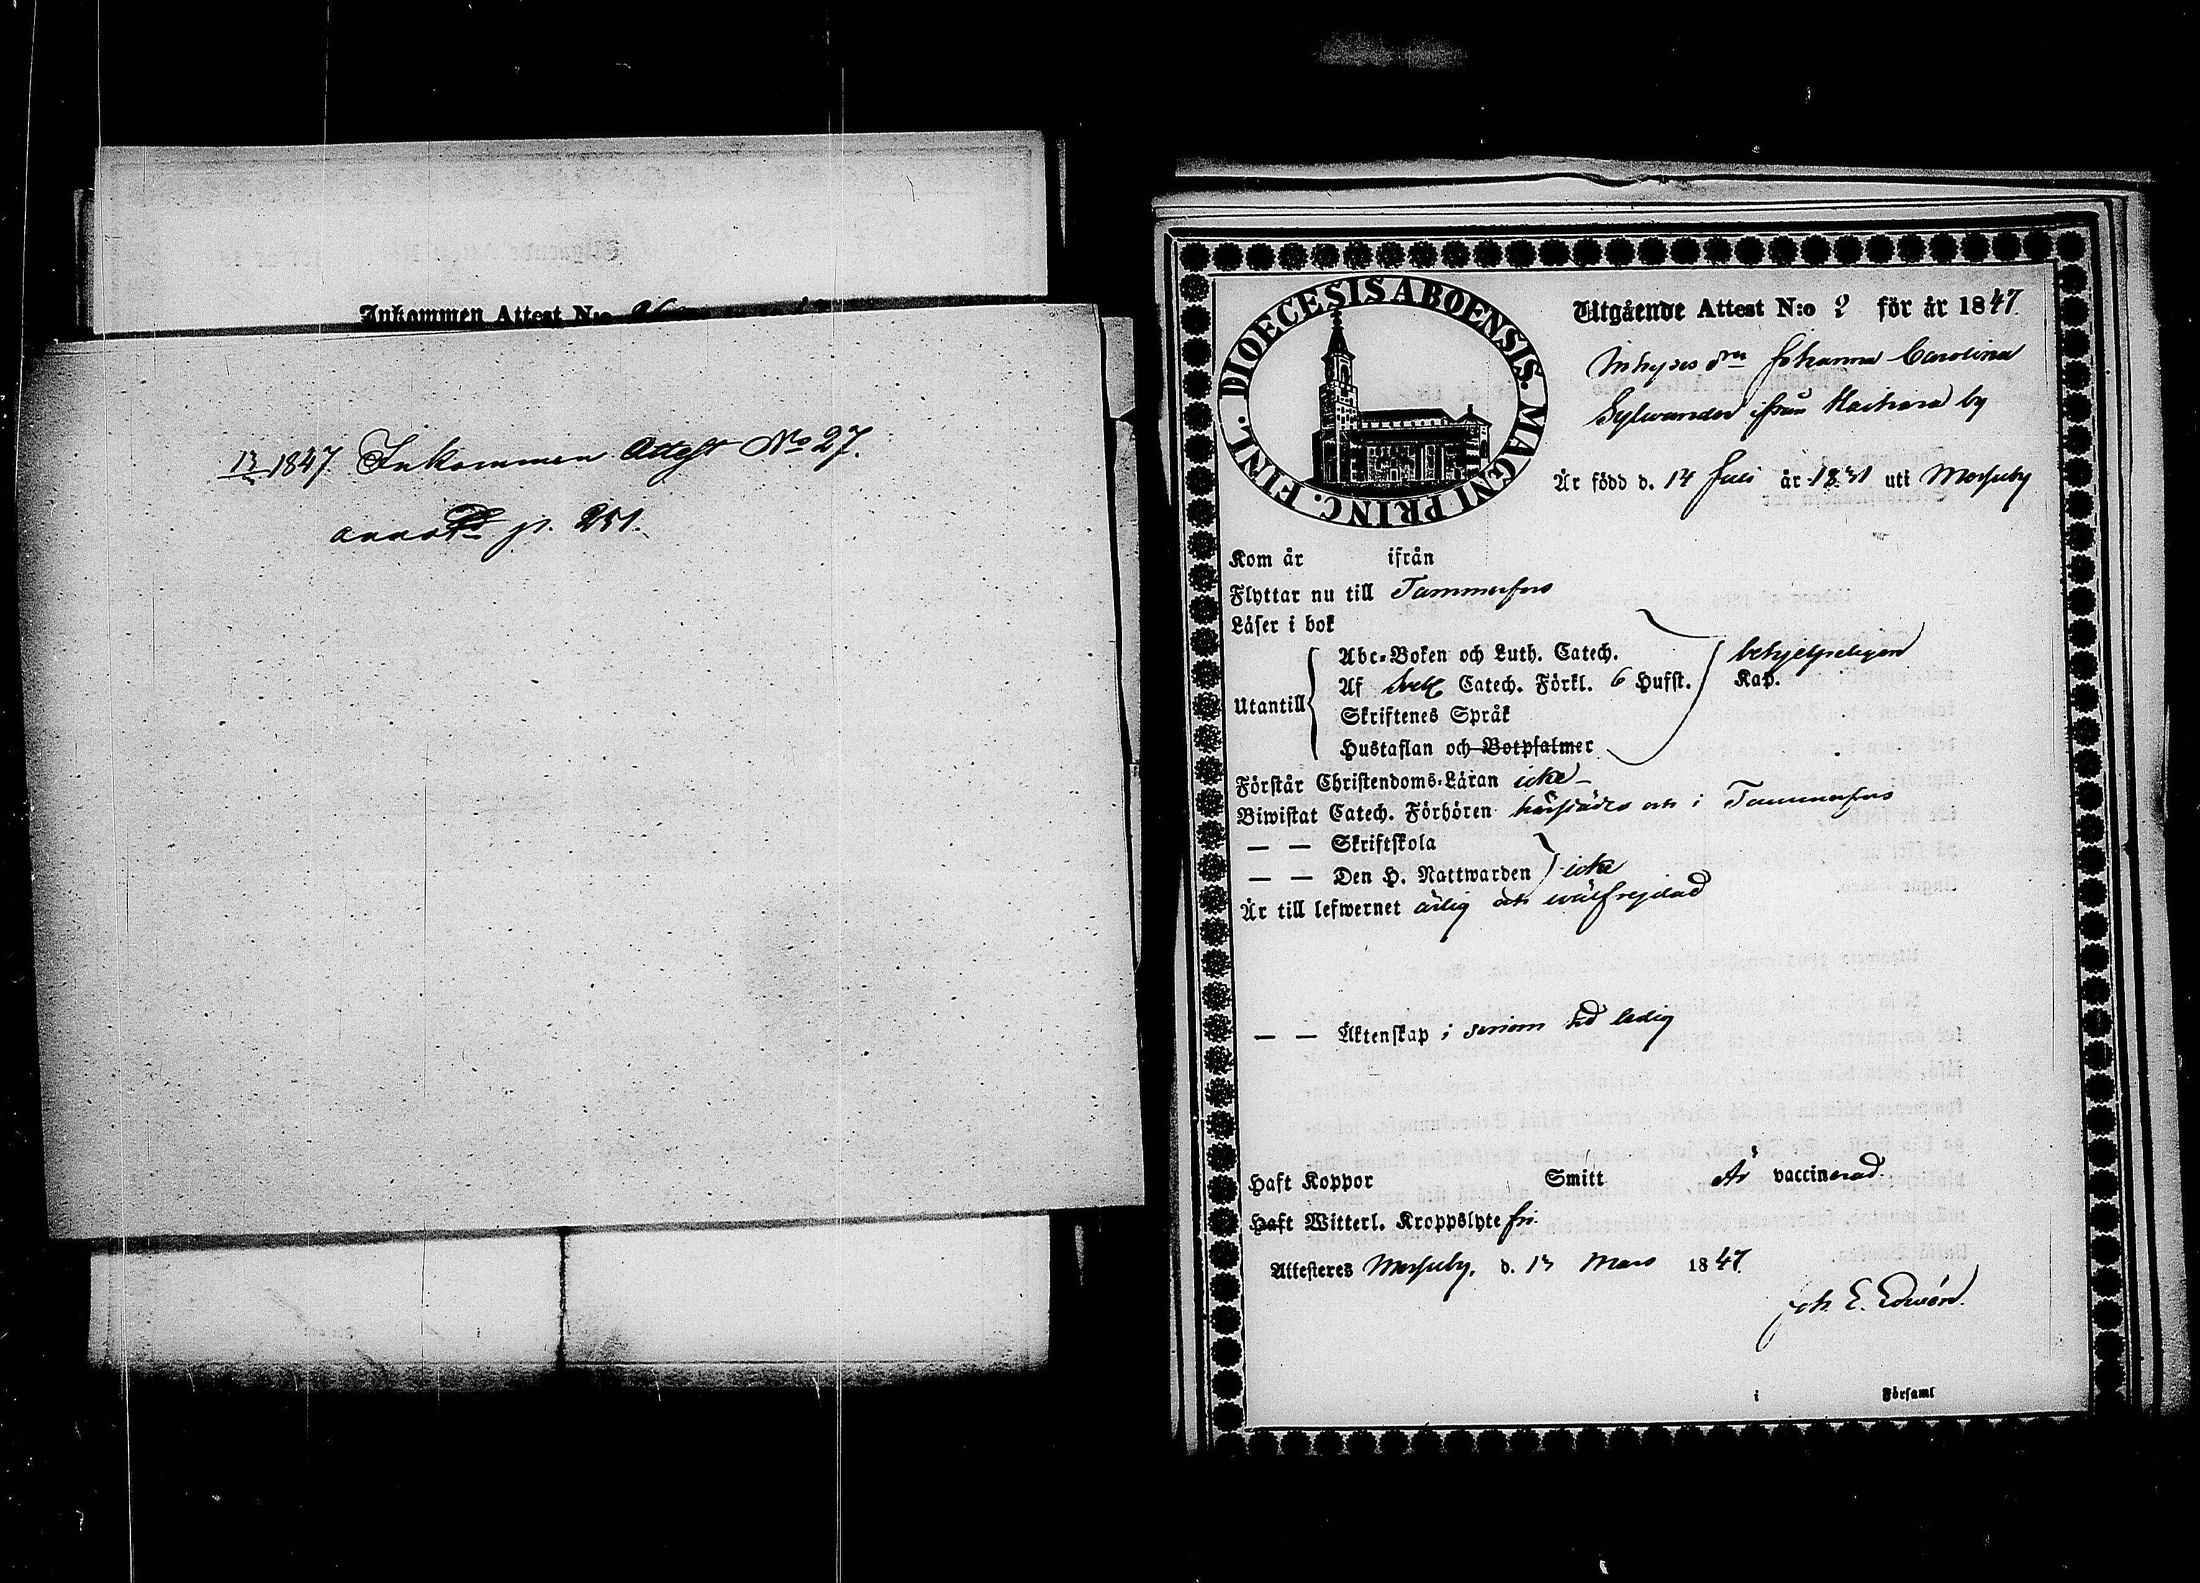 Inkommen Attest N:o 26
13/3 1847. Inkommen Attest No 27.
annotd p. 251.
DIOECESIS ABOENSIS. MAGNI PRINC. FINL.
Utgående Attest N:o 2 för år 1847.
Inhyses drn Johanna Carolina
Sylvander ifrån Haihara by
Är född d. 14 Juli år 1831 uti Messuby
Kom år ifrån
Flyttar nu till Tammerfors
Läser i bok
Abc-Boken och Luth. Catech. behjelpeligen
Utantill Af Sveb Catech. Förkl. 6 Hufst. Kap.
Skriftenes Språk
Hustaflan och Botpsalmer
Förstår Christendoms-Läran icke
Biwistat Catech. Förhören härstädes och i Tammerfors
— — Skriftskola
— — Den H. Nattwarden icke
Är till lefwernet ärlig och välfrejdad
— — Äktenskap i sinom tid ledig
Haft Koppor Smitt Är vaccinerad.
Haft Witterl. Kroppslyte fri.
Attesteres Messuby, d. 13 Mars 1847.
Joh. E. Edwén.
i Församl